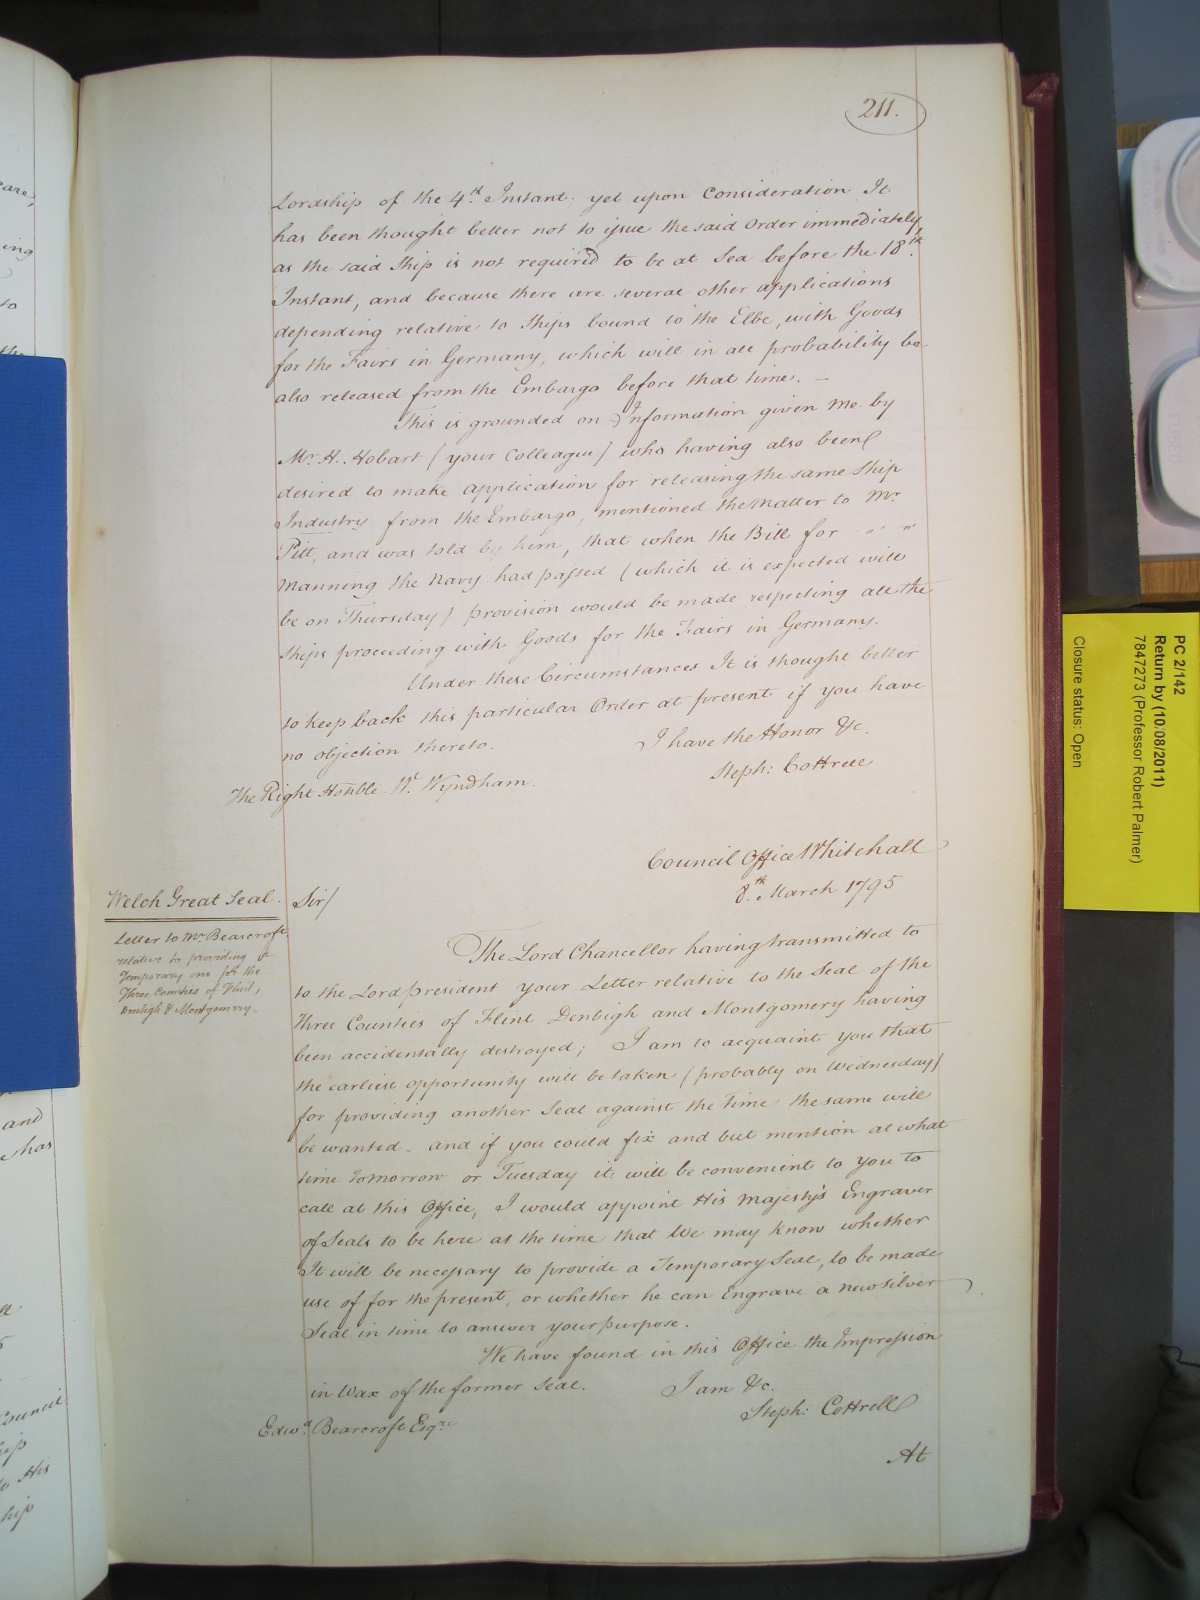 211.
Lordship of the 4th Instant. yet upon Consideration It
has been thought better not to issue the said Order immediately
as the said Ship is not required to be at Sea before the 18th.
Instant, and because there are several other applications
depending relative to Ships bound to the Elbe, with Goods
for the Fairs in Germany, which will in all probability be
also released from the Embargo before that time. —
This is grounded on Information given me by
Mr. H. Hobart (your Colleague) who having also been
desired to make application for releasing the same Ship
Industry from the Embargo, mentioned the Matter to Mr.
Pitt, and was told by him, that when the Bill for " "
Manning the Navy had passed (which it is expected will
be on Thursday) provision would be made respecting all the
Ships proceeding with Goods for the Fairs in Germany.
Under these Circumstances It is thought better
to keep back this particular Order at present if you have
no objection thereto.
I have the Honor &c.
Steph: Cottrell
The Right Honble. W. Wyndham.
Council Office Whitehall
8th. March 1795
Welch Great Seal.
Letter to Mr Bearcroft
relative to providing a
Temporary one for the
Three Counties of Flint,
Denbigh & Montgomery.
Sir/
The Lord Chancellor having transmitted to
to the Lord president your Letter relative to the Seal of the
three Counties of Flint Denbigh and Montgomery having
been accidentally destroyed; I am to acquaint you that
the earliest opportunity will be taken (probably on Wednesday)
for providing another Seal against the time the same will
be wanted. and if you could fix and but mention at what
time tomorrow or Tuesday it will be convenient to you to
call at this Office, I would appoint His Majesty's Engraver
of Seals to be here at the time that We may know whether
It will be necessary to provide a Temporary Seal, to be made
use of for the present, or whether he can Engrave a new Silver
Seal in time to answer your purpose.
We have found in this Office the Impression
in Wax of the former Seal.
I am &c.
Steph: Cottrell
Edwd. Bearcroft Esqre
At
PC 2/142
Return by (10/08/2011)
7847273 (Professor Robert Palmer)
Closure status: Open
care,
ing
to
the
and
has
Council
ship
to His
ship